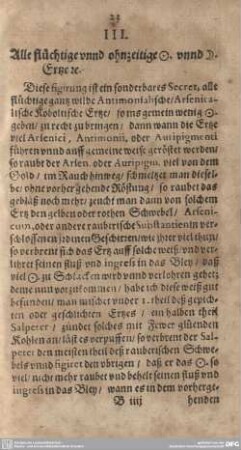 23
III.
Alle flüchtige vnnd ohnzeitige ☉. vnnd ☽.
Ertze ꝛc.
Diese figirung ist ein sonderbares Secret, alle
flüchtige gantz wilde Antimonialische/ Arsenica-
lische Kobolnische Ertze/ so ins gemein wenig ☉.
geben/ zu recht zu bringen/ dann wann die Ertze
viel Arsenici, Antimonii, oder Auripigmenti
führen vnnd auff gemeine weise geröster werden/
so raubt der Arsen. oder Auripigm. viel von dem
Gold/ im Rauch hinweg/ schmeltzet man diesel-
be/ ohne vorher gehende Röstung/ so raubet das
gebläß noch mehr/ zeucht man dann von solchem
Ertz den gelben oder rothen Schwefel/ Arseni-
cum, oder andere rauberische Substantien in ver-
schlossenen irdinen Geschirren/ wie ihrer viel thun/
so verbrent sich das Ertz auff solche weiß/ vnd ver-
lihret seinen fluß vnd ingreß in das Bley/ daß
viel ☉. zu Schlacken wird vnnd verlohren gehet;
deme nun vorzukommen/ habe ich diese weiß gut
befunden/ man mischet vnder 1. theil deß gepüch-
ten oder geschlichten Ertzes/ ein halben theil
Salpeter/ zündet solches mit Fewer glüenden
Kohlen an/ läst es verpuffen/ so verbrent der Sal-
peter den meisten theil deß rauberischen Schwe-
bels vnnd figiret den vbrigen/ daß er das ☉. so
viel nicht mehr raubet vnd behelt seinen fluß vnd
ingreß in das Bley/ wann es in dem vorherge-
B iiij henden